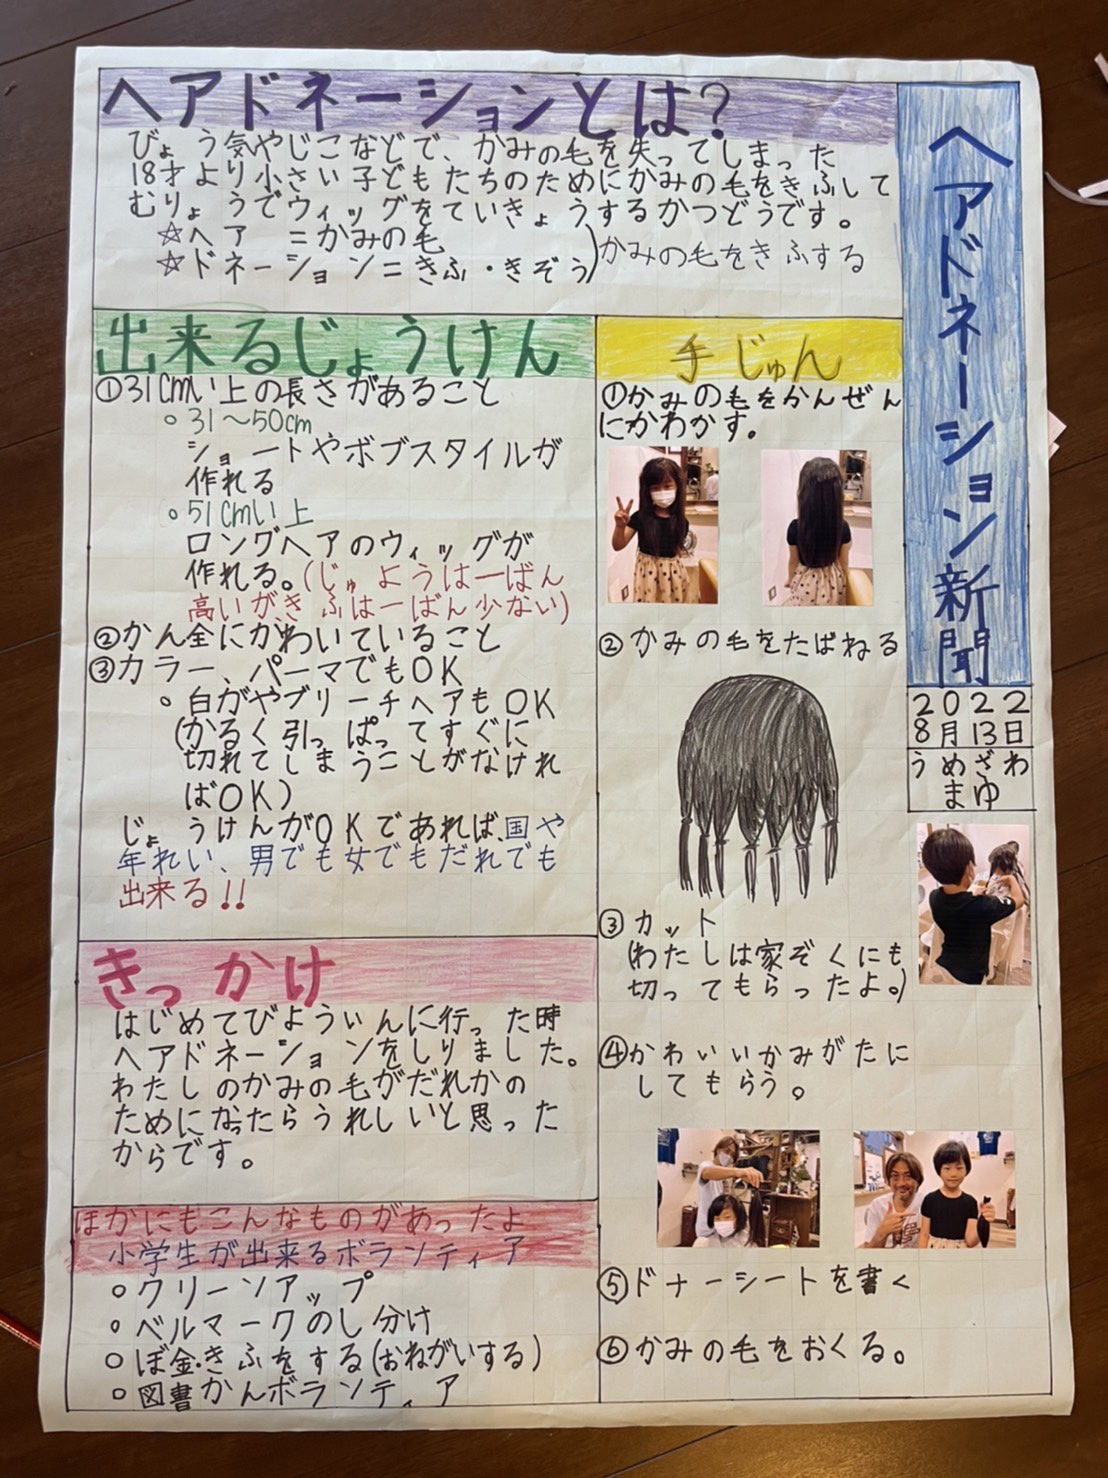 ヘアドネーション新聞
2022
8月13日
うめざわ
まゆ
ヘアドネーションとは?
びょう気やじこなどで、かみの毛を失ってしまった
18才より小さい子どもたちのためにかみの毛をきふして
むりょうでウィッグをていきょうするかつどうです。
☆ヘア=かみの毛
☆ドネーション=きふ・きぞう)かみの毛をきふする
出来るじょうけん
①31cmい上の長さがあること
○31〜50cm
ショートやボブスタイルが
作れる
○51cmい上
ロングヘアのウィッグが
作れる。(じゅようは一ばん
高いがきふは一ばん少ない)
②かん全にかわいていること
③カラー、パーマでもOK
○白がやブリーチヘアもOK
(かるく引っぱってすぐに
切れてしまうことがなけれ
ばOK)
じょうけんがOKであれば、国や
年れい、男でも女でもだれでも
出来る!!
きっかけ
はじめてびよういんに行った時
ヘアドネーションをしりました。
わたしのかみの毛がだれかの
ためになったらうれしいと思った
からです。
ほかにもこんなものがあったよ
小学生が出来るボランティア
○クリーンアップ
○ベルマークのし分け
○ぼ金・きふをする(おねがいする)
○図書かんボランティア
手じゅん
①かみの毛をかんぜん
にかわかす。
②かみの毛をたばねる
③カット
(わたしは家ぞくにも
切ってもらったよ。)
④かわいいかみがたに
してもらう。
⑤ドナーシートを書く
⑥かみの毛をおくる。